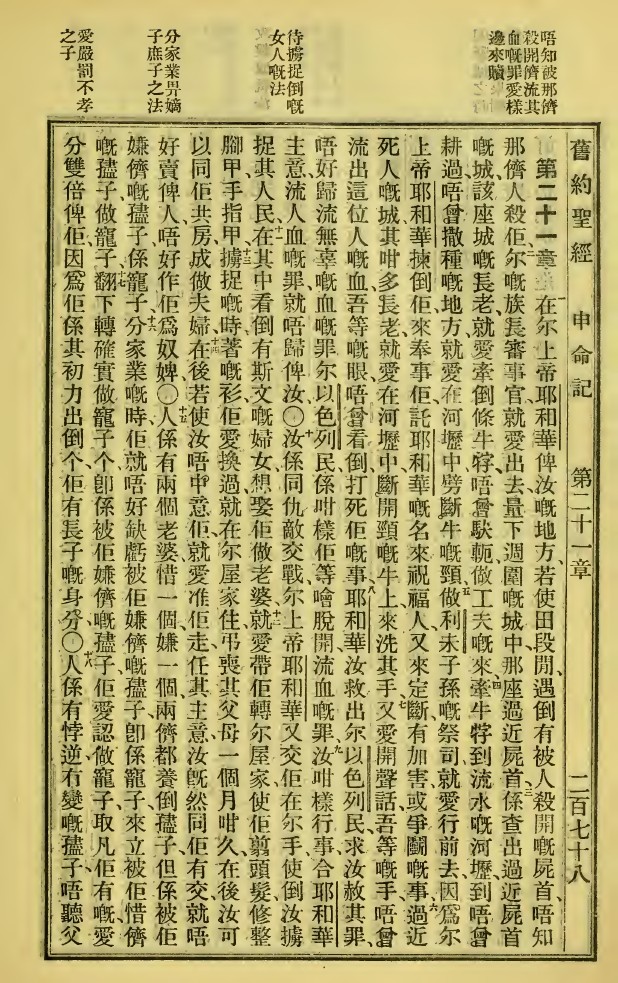 唔知被那儕
殺開儕流其
血嘅罪愛樣
邊來贖
待擄捉倒嘅
女人嘅法
分家業畀嫡
子庶子之法
愛嚴罰不孝
之子
舊約聖經 申命記 第二十一章 二百七十八
第二十一章 一在尔上帝耶和華俾汝嘅地方、若使田段開、遇倒有被人殺開嘅屍首、唔知
那儕人殺佢、二尔嘅族長審事官就愛出去、量下週圍嘅城中、那座過近屍首、三係查出過近屍首
嘅城、該座城嘅長老、就愛牽倒條牛牸、唔曾駛軛做工夫嘅來、四牽牛牸到流水嘅河壢、到唔曾
耕過唔曾撒種嘅地方、就愛在河壢中劈斷牛嘅頸、五做利未子孫嘅祭司就愛行前去、因爲尔
上帝耶和華揀倒佢來奉事佢、託耶和華嘅名來祝福人、又來定斷有加害或爭鬭嘅事、六過近
死人嘅城、其咁多長老就愛在河壢中斷開頸嘅牛上來洗其手、七又愛開聲話、吾等嘅手唔曾
流出這位人嘅血、吾等嘅眼唔曾看倒打死佢嘅事、八耶和華汝救出尔以色列民、求汝赦其罪、
唔好歸流無辜嘅血嘅罪尔以色列民、係咁樣佢等噲脫開流血嘅罪、九汝咁樣行事合耶和華
主意、流人血嘅罪就唔歸俾汝、〇十汝係同仇敵交戰、尔上帝耶和華又交佢在尔手、使倒汝擄
捉其人民、十一在其中看倒有斯文嘅婦女、想娶佢做老婆、十二就愛帶佢轉尔屋家、使佢翦頭髮修整
腳甲手指甲、十三擄捉嘅時著嘅衫、佢愛換過、就在尔屋家住、弔喪其父母一個月咁久、在後汝可
以同佢共房成做夫婦、十四在後若使汝唔中意佢、就愛准佢走、任其主意、汝旣然同佢有交、就唔
好賣俾人、唔好作佢爲奴婢、〇十五人係有兩個老婆、惜一個、嫌一個、兩儕都養倒孻子、但係被佢
嫌儕嘅孻子係寵子、十六分家業嘅時、佢就唔好缺虧被佢嫌儕嘅孻子、卽係寵子、來立被佢惜儕
嘅孻子做寵子、十七翻下轉確實做寵子个、卽係被佢嫌儕嘅孻子、佢愛認做寵子、取凡佢有嘅、愛
分雙倍俾佢、因爲佢係其初力出倒个、佢有長子嘅身分、〇十八人係有悖逆冇變嘅孻子、唔聽父